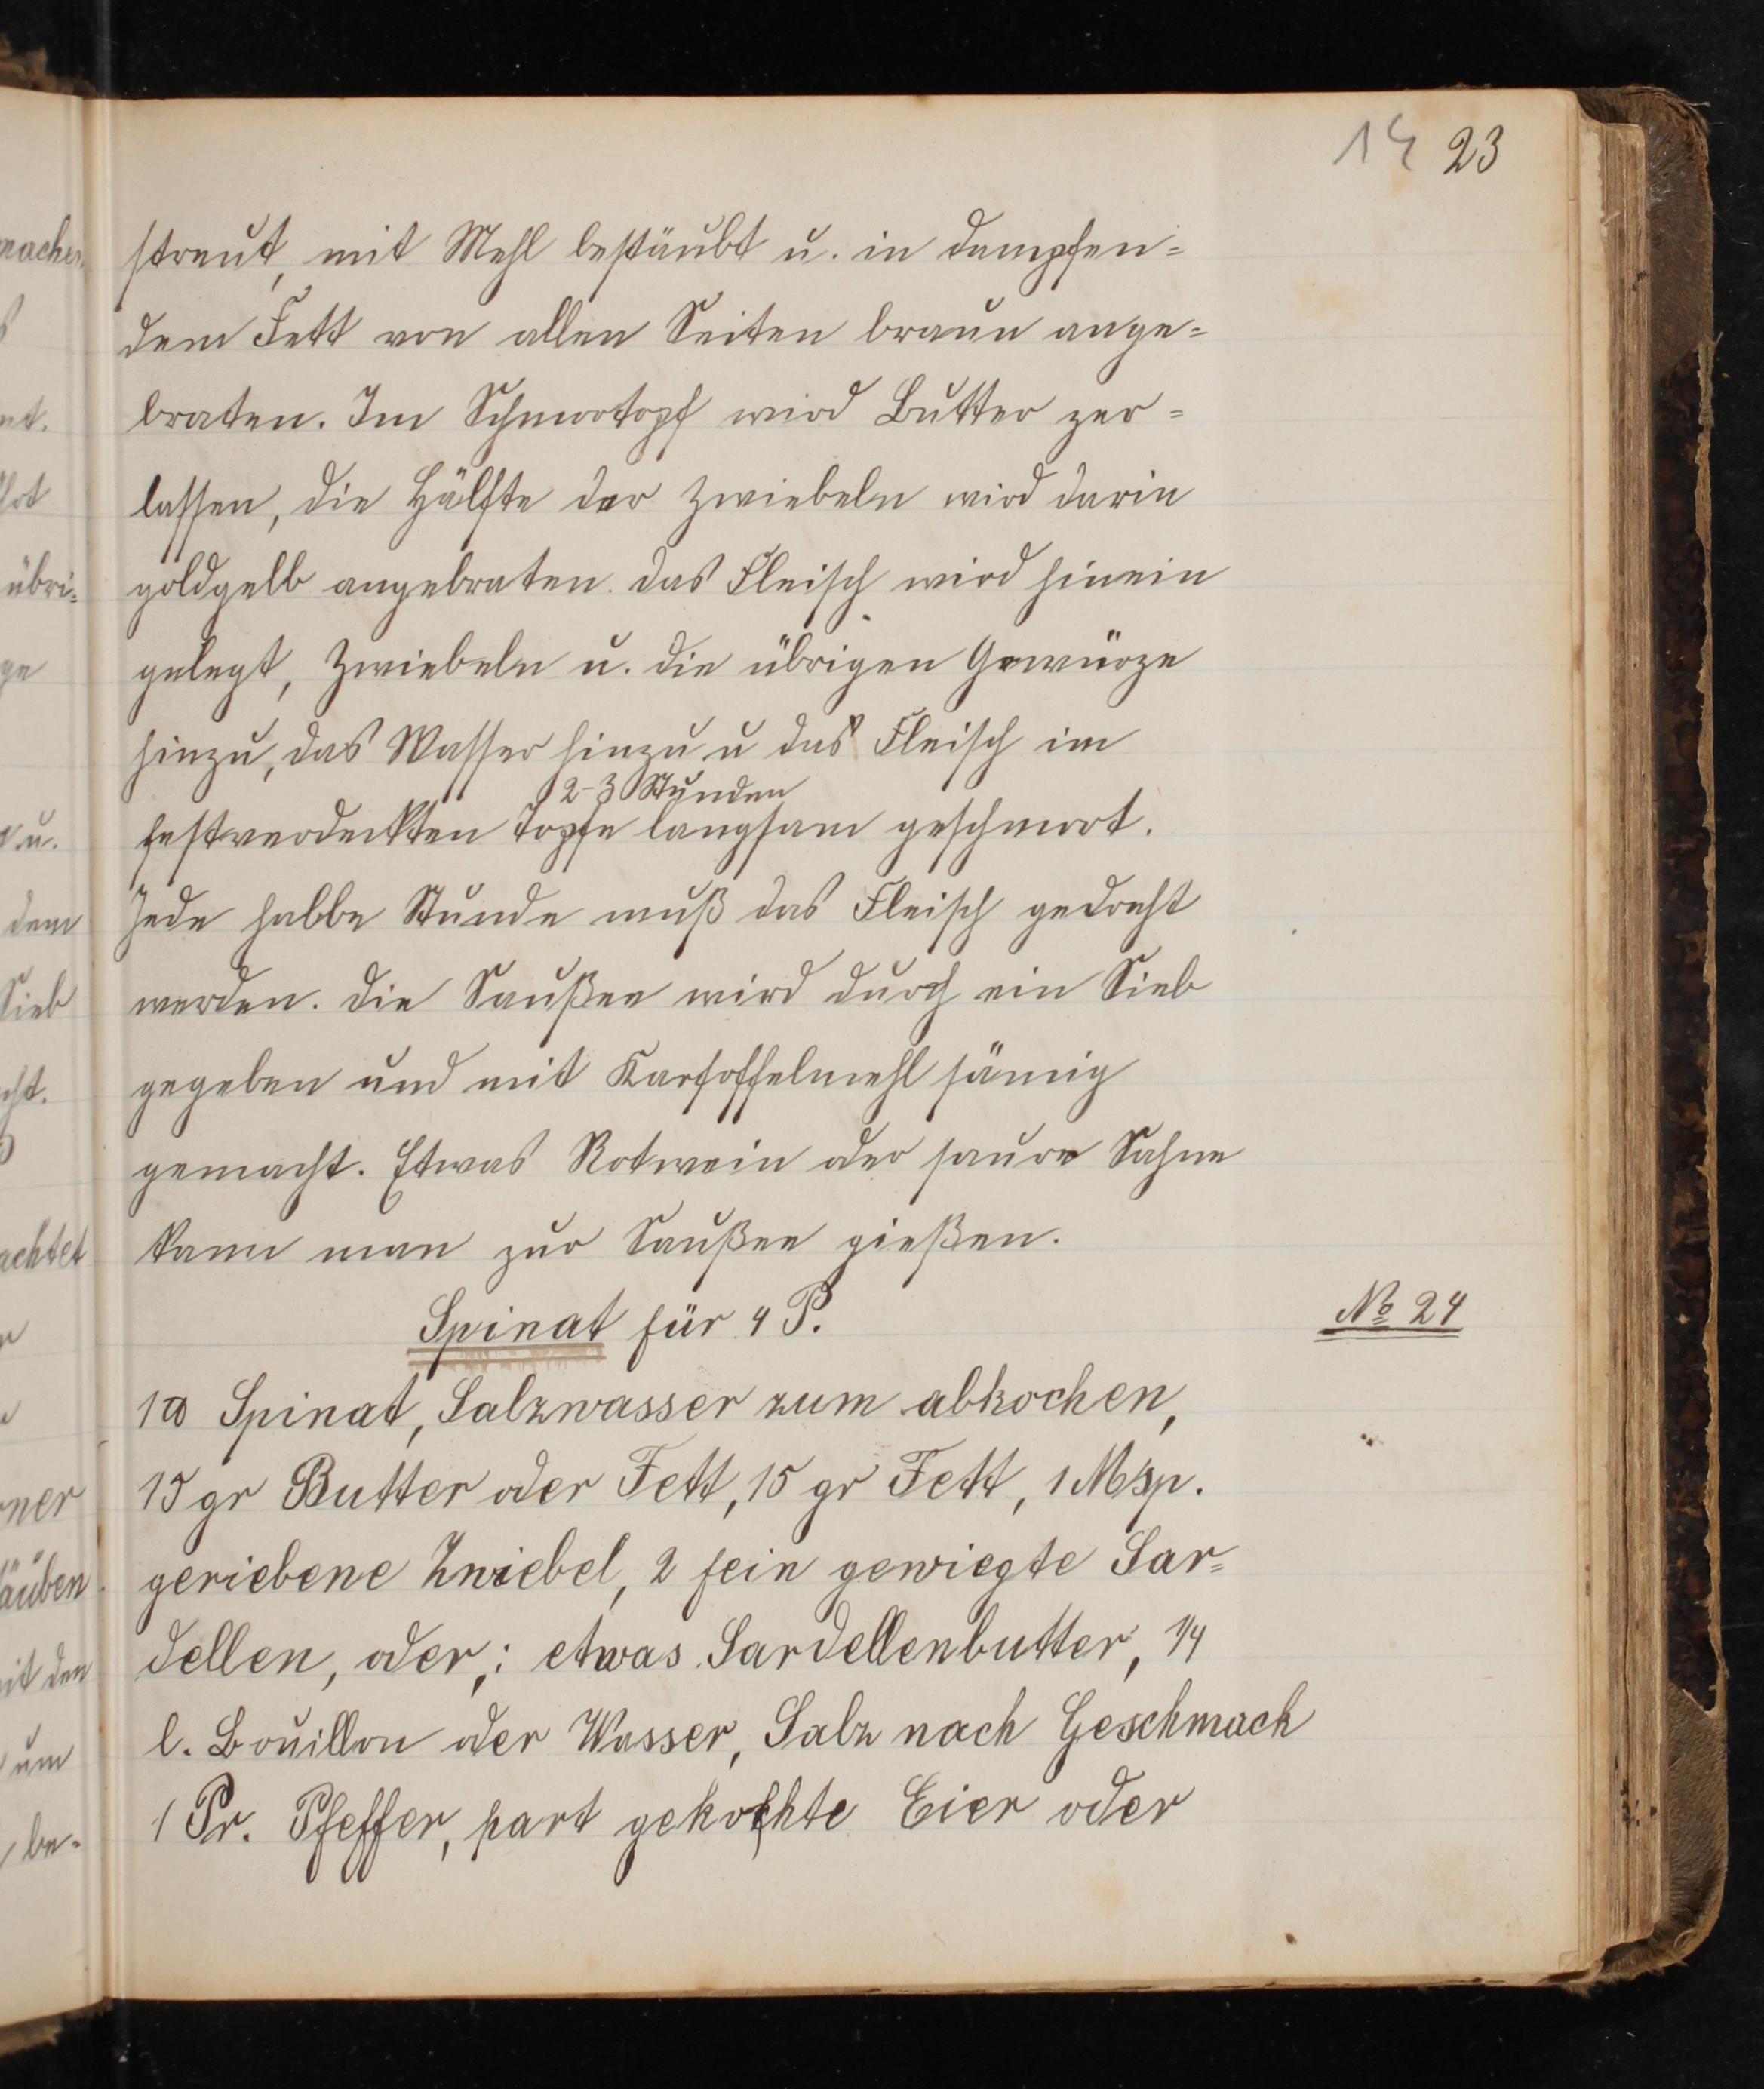 14 23
streut, mit Mehl bestäubt u. in dampfen=
dem Fett von allen Seiten braun ange=
braten. Im Schmortopf wird Butter zer=
lassen, die Hälfte der Zwiebeln wird darin
goldgelb angebraten. das Fleisch wird hinein
gelegt, Zwiebeln u. die übrigen Gewürze
hinzu, das Wasser hinzu u das Fleisch im
2-3 Stunden
festverdeckten Topfe langsam geschmort.
Jede halbe Stunde muß das Fleisch gedreht
werden. Die Saußee wird durch ein Sieb
gegeben und mit Kartoffelmehl sämig
gemacht. Etwas Rotwein oder saure Sahne
kann man zur Saußee gießen.
Spinat für 4 P.
№ 24
1 ℔ Spinat, Salzwasser zum abkochen,
15 gr Butter oder Fett, 15 gr Fett, 1 Msp.
geriebene Zwiebel, 2 fein gewiegte Sar=
dellen, oder,: etwas Sardellenbutter, 1/4
l. Bouillon oder Wasser, Salz nach Geschmack
1 Pr. Pfeffer, hart gekochte Eier oder
machen
übri=
ge
u.
dem
Sieb
achtet
ner
äuben
mit den
um
be=